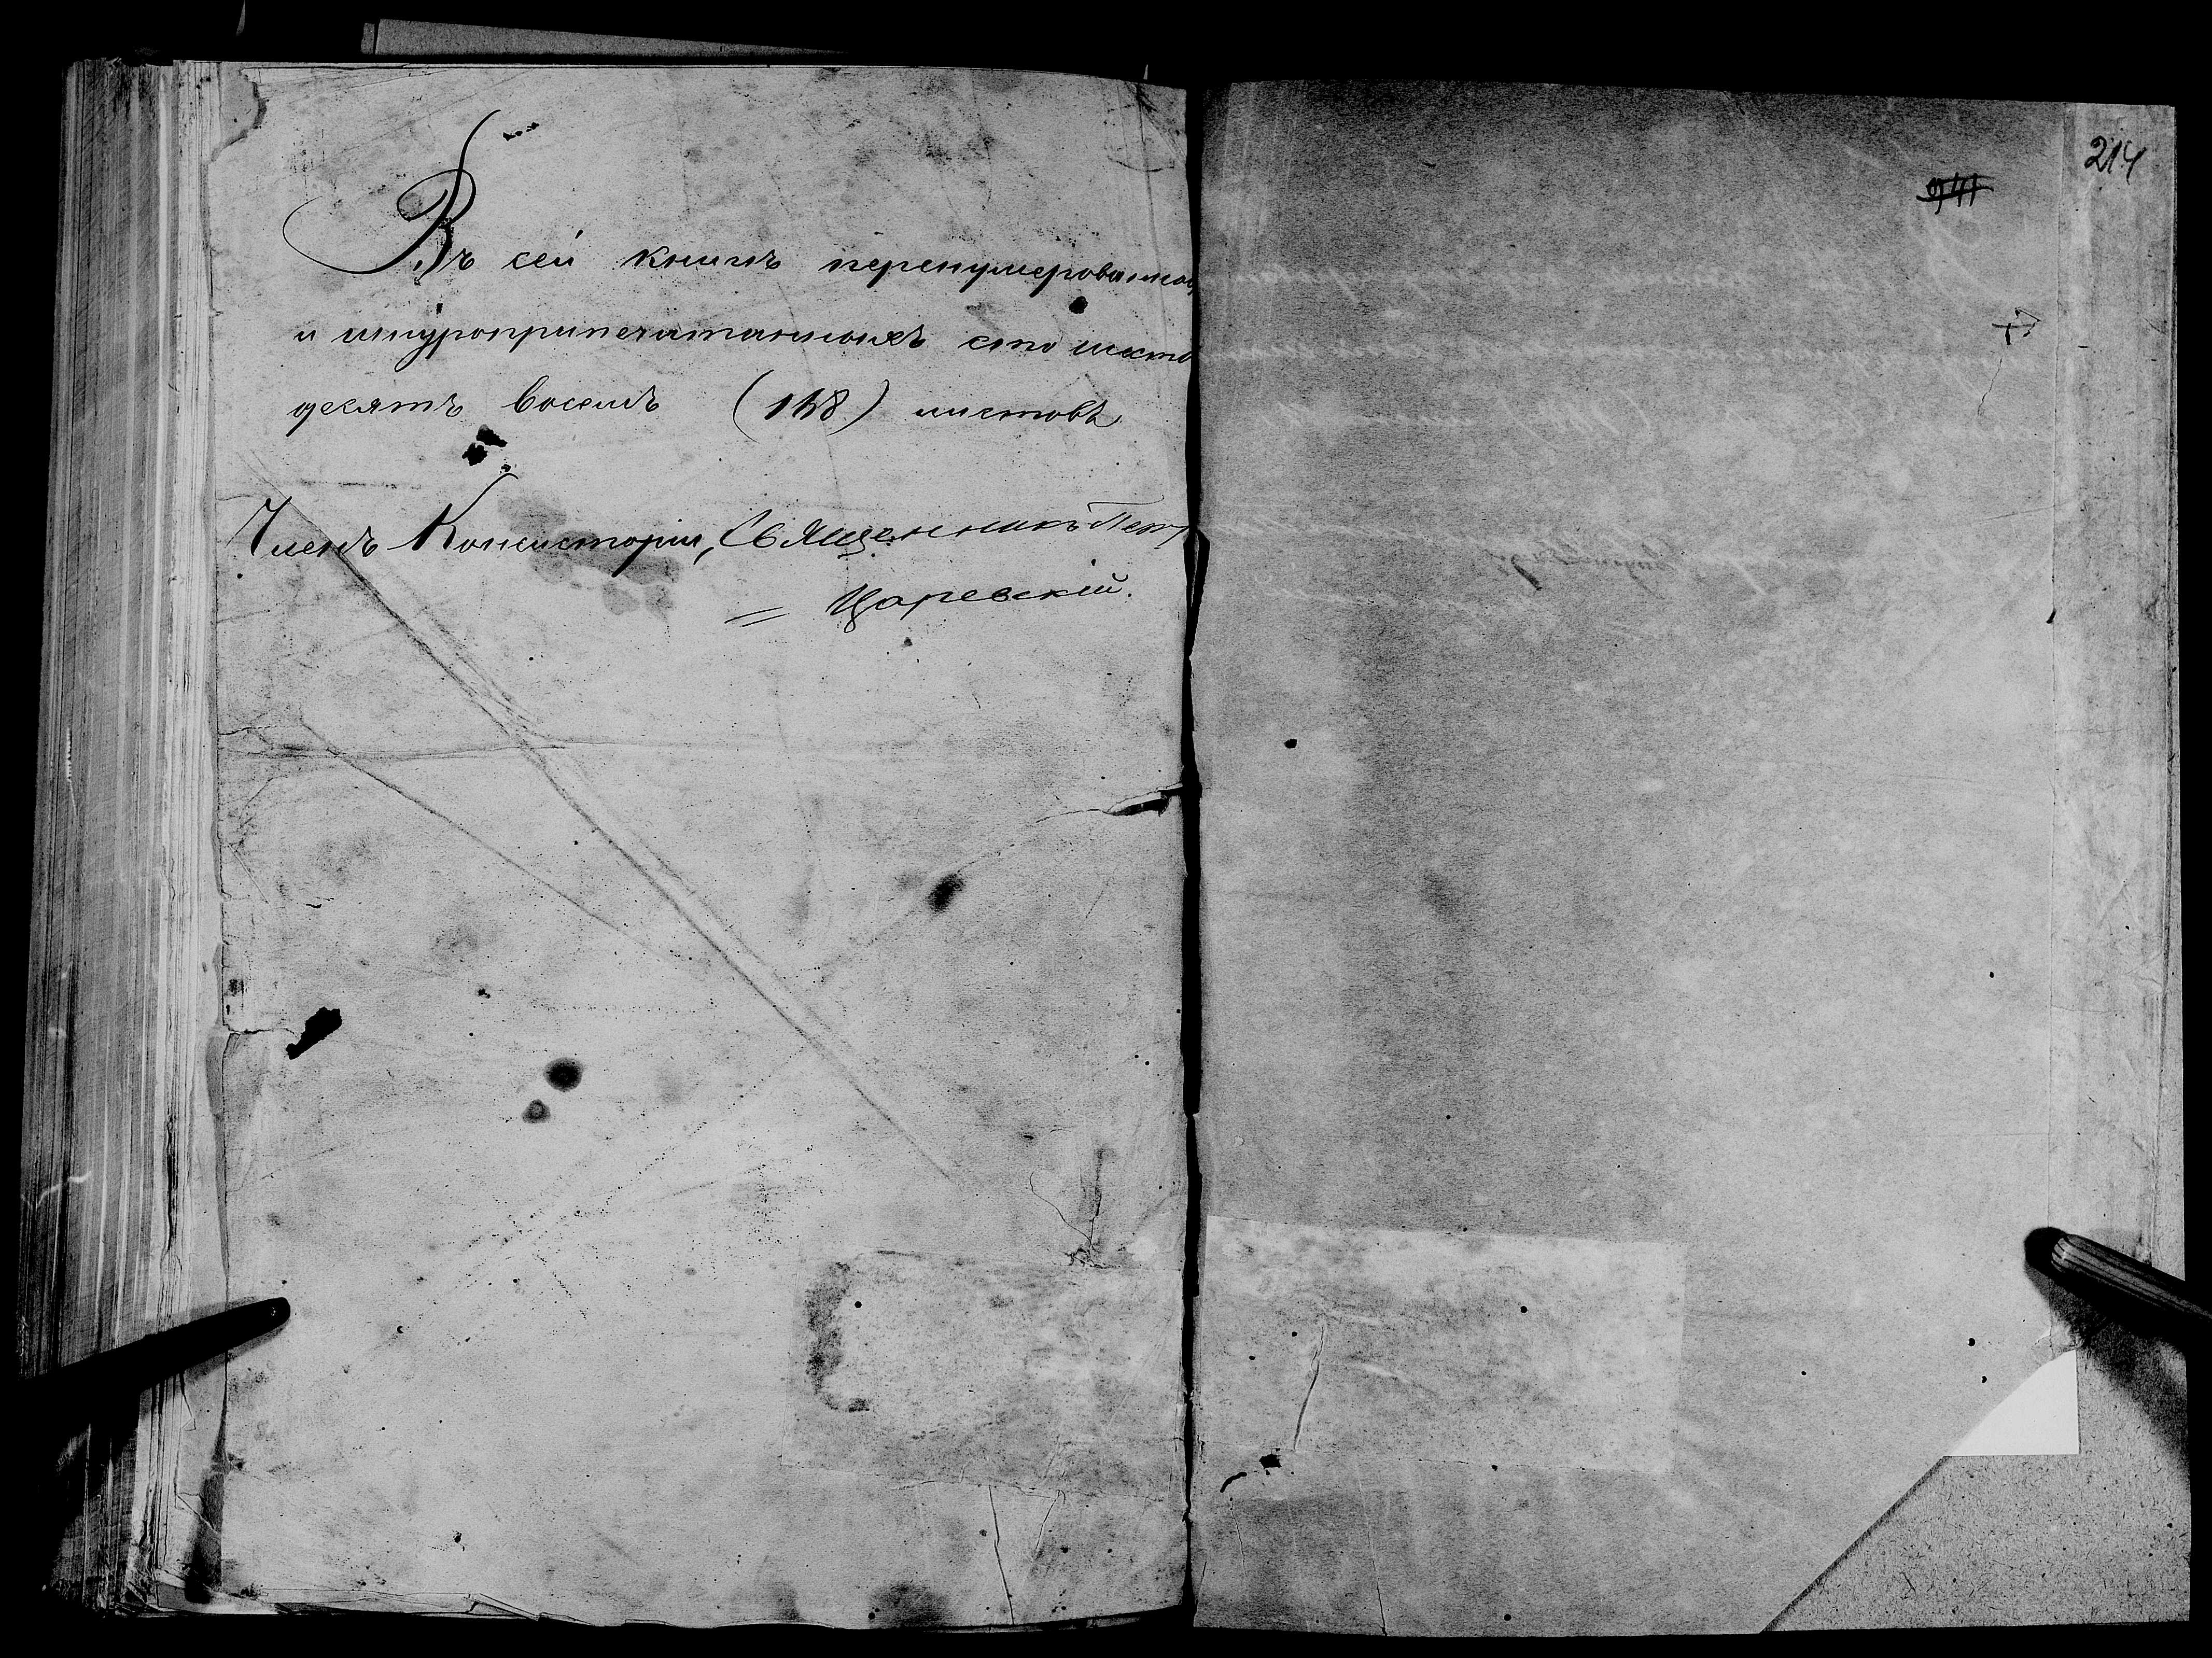 Въ сей книгѣ перенумерованных
и шнуроприпечатанныхъ сто шесть
десятъ восемь (168) листовъ
Членъ Консисторіи, Священникъ Петръ
Царевскій.
941
214